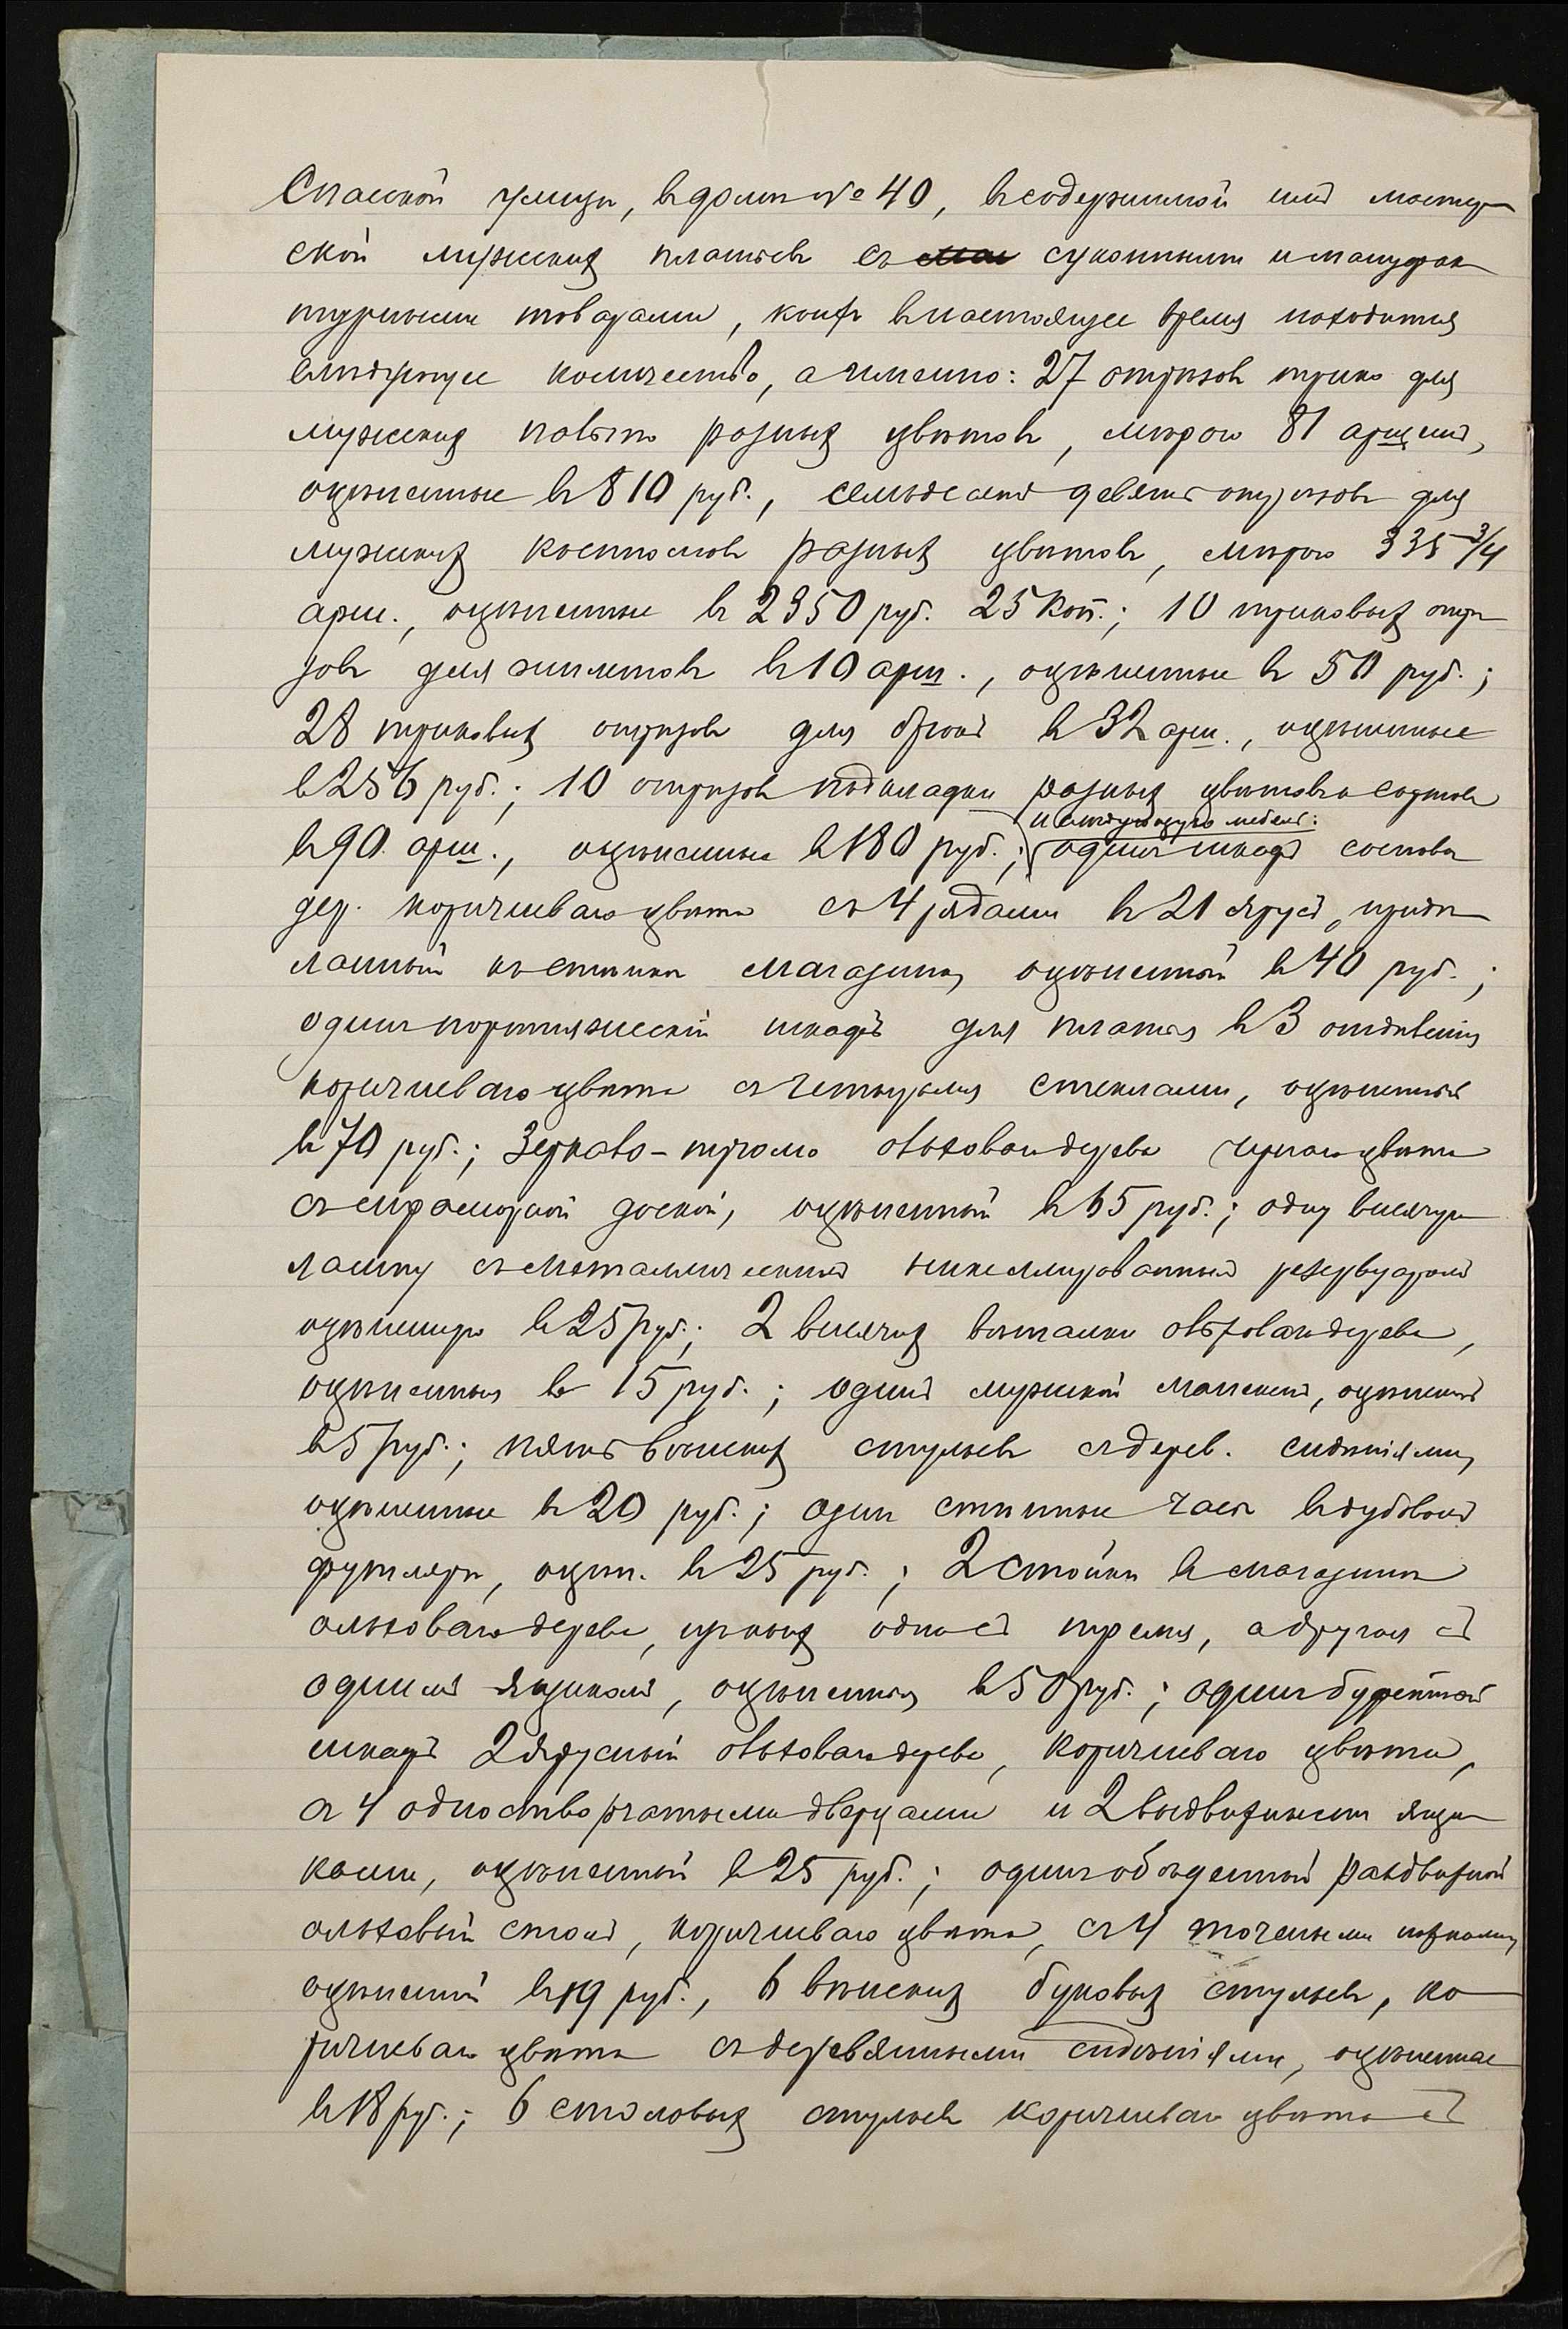 Спасской улицѣ, въ домѣ № 40, въ содержимой имъ мастер-
ской мужскихъ платьевъ съ суконными и мануфак-
турными товарами, коихъ въ настоящее время находится
слѣдующее количество, а именно: 27 отрѣзовъ трико для
мужскихъ пальто разныхъ цвѣтовъ, мѣрою 81 аршинъ,
оцѣненные въ 810 руб., семьдесятъ девять отрѣзовъ для
мужскихъ костюмовъ разныхъ цвѣтовъ, мѣрою 335 3/4
арш., оцѣненные въ 2350 руб. 25 коп.; 10 триковыхъ отрѣ-
зовъ для жилетовъ въ 10 арш., оцѣненные въ 50 руб.;
28 триковыхъ отрѣзовъ для брюкъ въ 32 арш., оцѣненные
въ 256 руб.; 10 отрѣзовъ подкладки разныхъ цвѣтовъ и сортовъ
въ 90 арш., оцѣненные въ 180 руб.; и слѣдующую мебель: одинъ шкафъ соснов.
дер. коричневаго цвѣта съ 4 рядами въ 21 ярусъ, придѣ-
ланный къ стѣнкѣ магазина, оцѣненный въ 40 руб.;
одинъ шкафъ для платья въ 3 отдѣленія
коричневаго цвѣта съ четырьмя стеклами, оцѣненный
въ 70 руб.; зеркало-трюмо ольховаго дерева чернаго цвѣта
съ мраморной доской, оцѣненный въ 65 руб.; одну висячую
лампу съ металлическимъ никеллированнымъ резервуаромъ
оцѣненную въ 25 руб.; 2 висячихъ вѣшалки ольховаго дерева,
оцѣненныя въ 15 руб.; одинъ мужской манекенъ, оцѣненный
въ 5 руб.; пять вѣнскихъ стульевъ съ дерев. сидѣніями,
оцѣненные въ 20 руб.; одни стѣнные часы въ дубовомъ
футлярѣ, оцѣн. въ 25 руб.; 2 стойки въ магазинѣ
ольховаго дерева, изъ коихъ одна съ тремя, а другая съ
однимъ ящикомъ, оцѣненныя въ 50 руб.; одинъ буфетный
шкафъ 2 ярусный ольховаго дерева, коричневаго цвѣта,
съ 4 одностворчатыми дверцами и 2 выдвижными ящи-
ками, оцѣненный въ 25 руб.; одинъ обѣденный раздвижной
ольховый столъ, коричневаго цвѣта, съ 4 точеными ножками,
оцѣненный въ 19 руб., 6 вѣнскихъ буковыхъ стульевъ, ко-
ричневаго цвѣта съ деревянными сидѣніями, оцѣненные
въ 18 руб.; 6 столовыхъ стульевъ коричневаго цвѣта съ